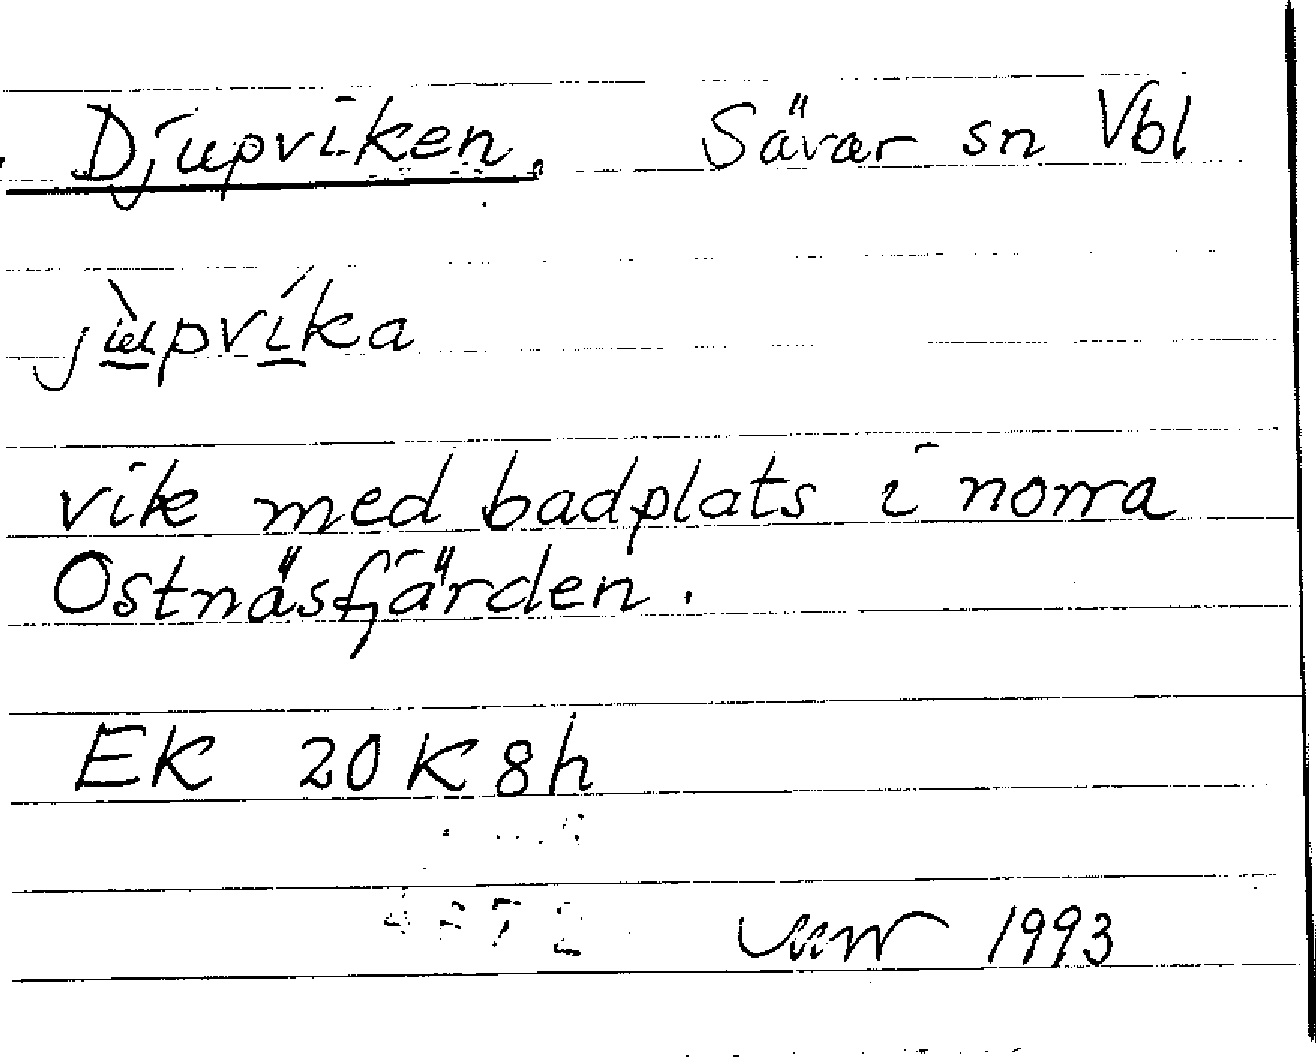 Djupviken. Sävar sn Vbl
jùpvíka
vik med badplats i norra
Ostnäsfjärden.
EK 20K8h
1993